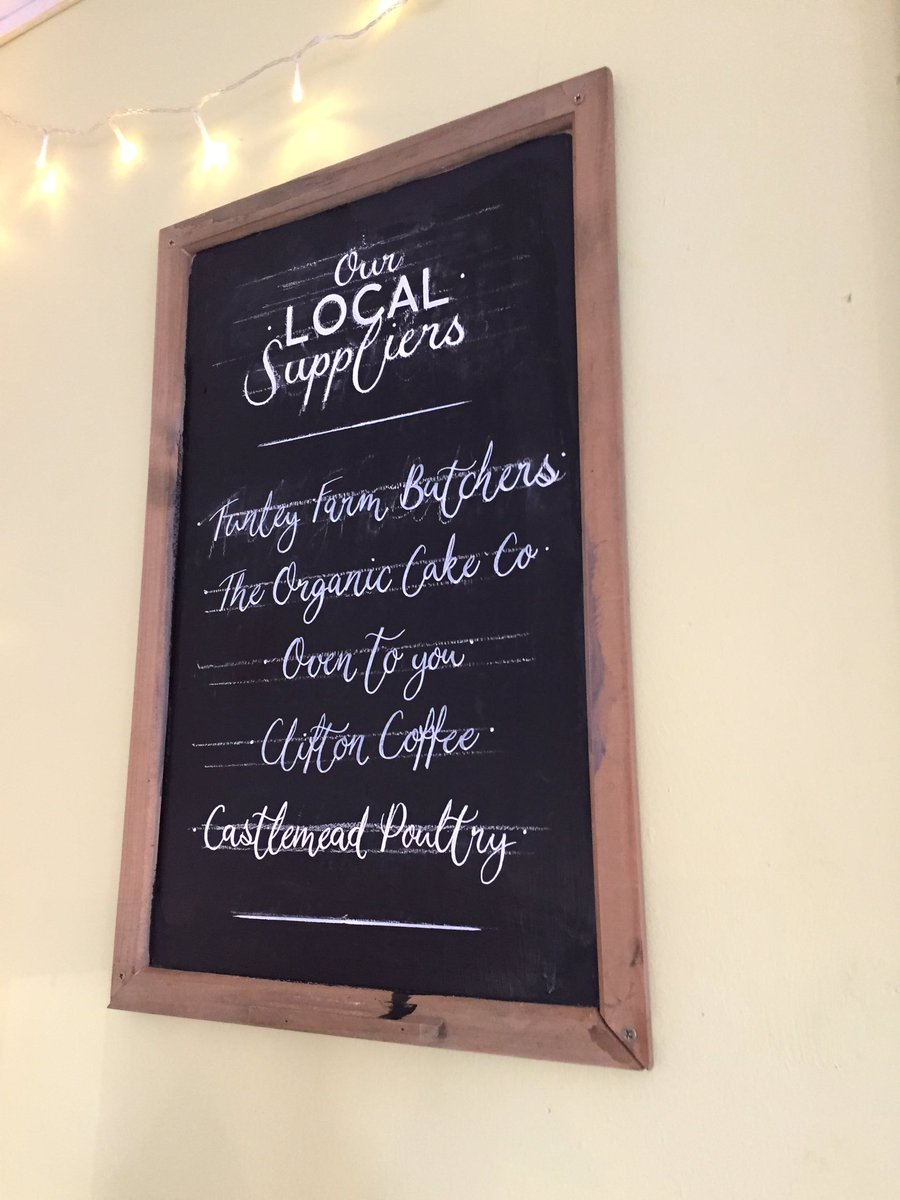 Our
LOCAL
Suppliers
Farm Butchers
The Organic Cake Co
Oven to you
Clifton Coffee
Castlemead Poultry